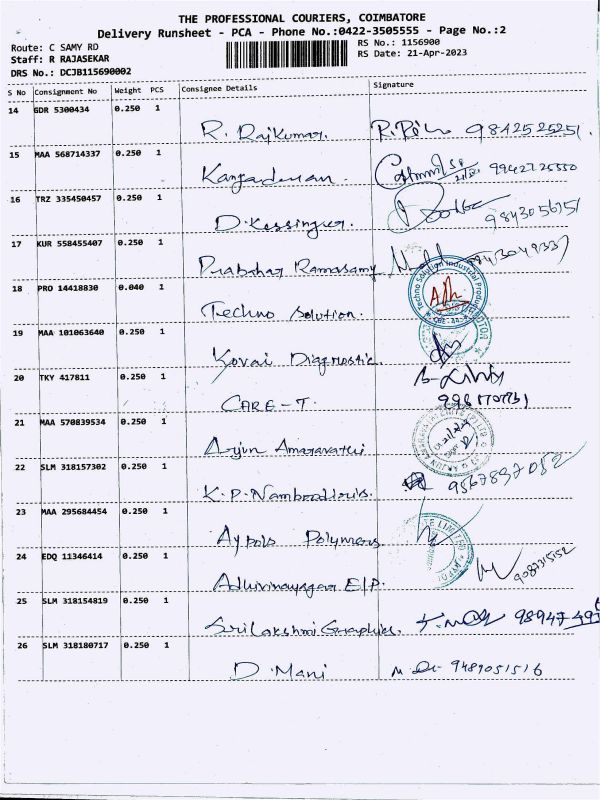 THE PROFESSIONAL COURIERS, COIMBATORE
Delivery Runsheet - PCA - Phone No.:0422-3505555 - Page No.:2
Route: C SAMY RD
RS No.: 1156900
Staff: R RAJASEKAR
RS Date: 21-Apr-2023
DRS No.: DCJB115690002
S No Consignment No Weight PCS Consignee Details Signature
14 GDR 5300434 0.250 1
R. Rajkumar. 9842525251.
15 MAA 568714337 0.250 1
16 TRZ 335450457 0.250 1
17 KUR 558455407 0.250 1
Prabahar Ramasamy
18 PRO 14418830 0.040 1
Techno Solution
19 MAA 101063640 0.250 1
Kovai Diagnostic
20 TKY 417811 0.250 1
CARE-T.
21 MAA 570839534 0.250 1
Arjun Amaravathi
22 SLM 318157302 0.250 1
9567897052
23 MAA 295684454 0.250 1
Aypols Polymers
24 EDQ 11346414 0.250 1
Adhivinayagar E/P.
25 SLM 318154819 0.250 1
Srilakshmi Graphics.
26 SLM 318180717 0.250 1
D. Mani 9489051516